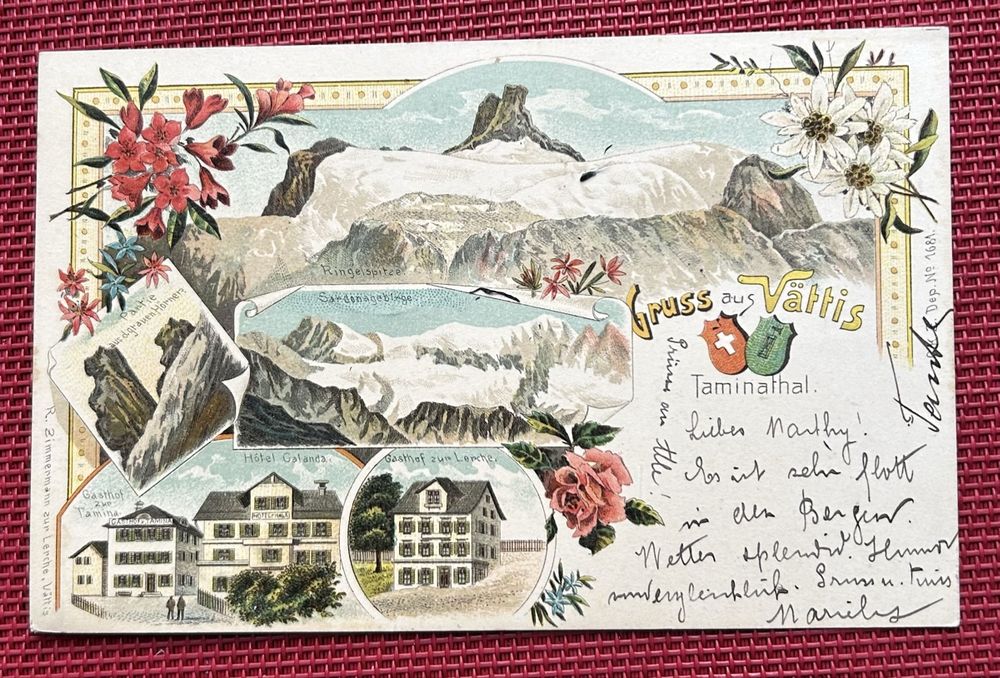 Dep. № 1681.
Ringelspitze
Sardonagebirge
Partie
a.d. grauen Hörner
Gruss aus Vättis
Taminathal.
Liebes Marthy!
Es ist sehr flott
in den Bergen
Wetter splendid. Humor
unvergleichlich. Gruss u.
Hôtel Calanda.
Gasthof zur Lerche.
Gasthof
zur
Tamina.
GASTHOF z. TAMINA
R. Zimmermann zur Lerche, Vättis